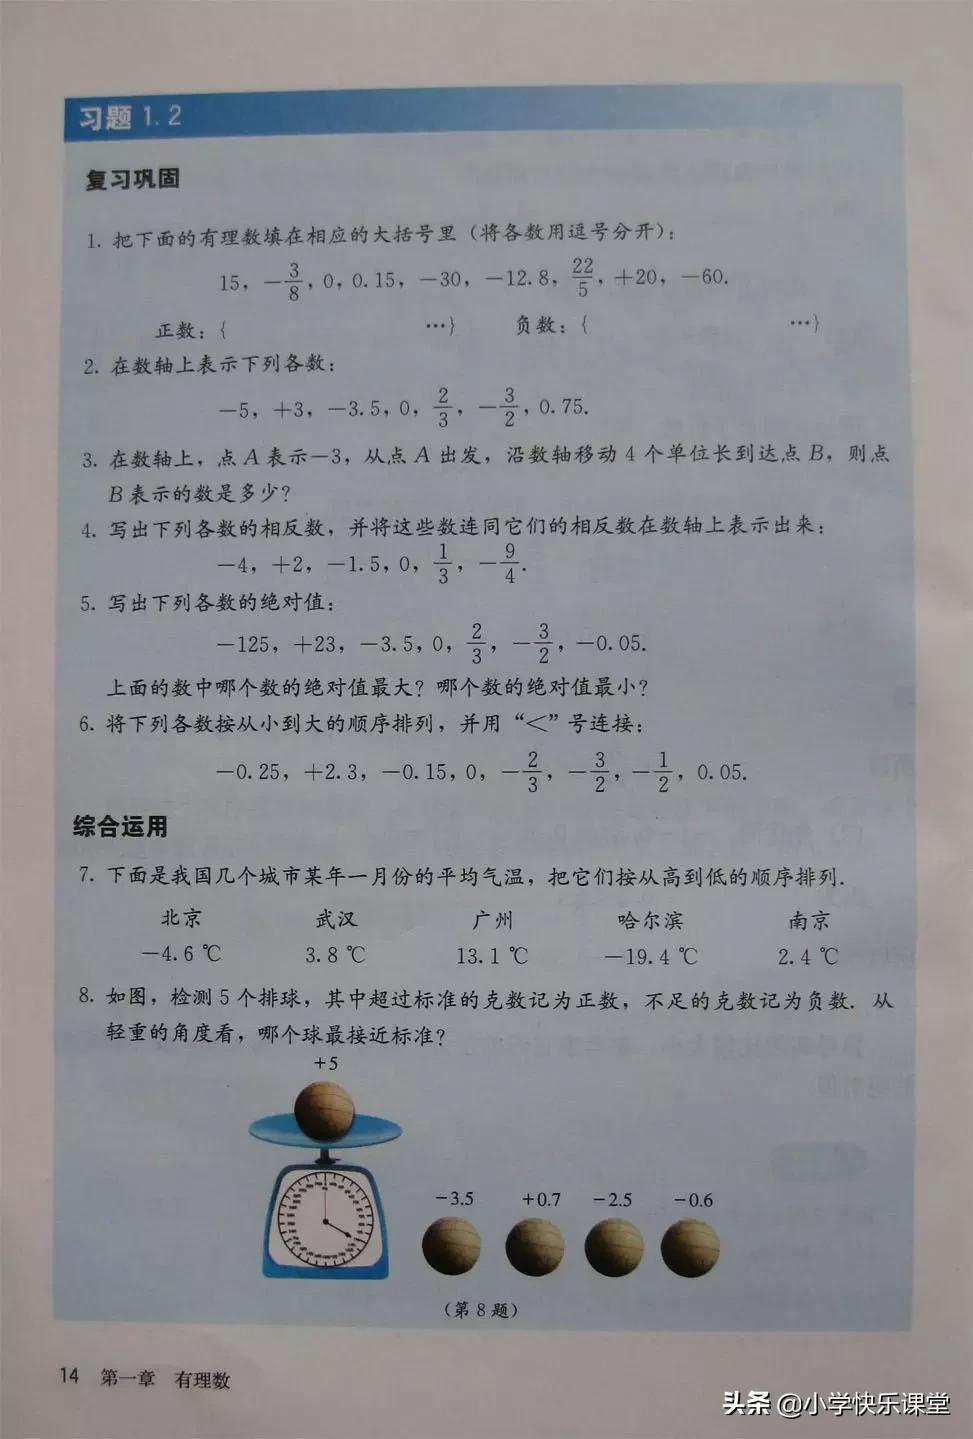 习题 1.2
复习巩固
1. 把下面的有理数填在相应的大括号里（将各数用逗号分开）：
15，－3/8，0，0.15，－30，－12.8，22/5，＋20，－60.
正数：{ …} 负数：{ …}
2. 在数轴上表示下列各数：
－5，＋3，－3.5，0，2/3，－3/2，0.75.
3. 在数轴上，点 A 表示－3，从点 A 出发，沿数轴移动 4 个单位长到达点 B，则点
B 表示的数是多少？
4. 写出下列各数的相反数，并将这些数连同它们的相反数在数轴上表示出来：
－4，＋2，－1.5，0，1/3，－9/4.
5. 写出下列各数的绝对值：
－125，＋23，－3.5，0，2/3，－3/2，－0.05.
上面的数中哪个数的绝对值最大？哪个数的绝对值最小？
6. 将下列各数按从小到大的顺序排列，并用“＜”号连接：
－0.25，＋2.3，－0.15，0，－2/3，－3/2，－1/2，0.05.
综合运用
7. 下面是我国几个城市某年一月份的平均气温，把它们按从高到低的顺序排列.
北京 武汉 广州 哈尔滨 南京
－4.6 ℃ 3.8 ℃ 13.1 ℃ －19.4 ℃ 2.4 ℃
8. 如图，检测 5 个排球，其中超过标准的克数记为正数，不足的克数记为负数. 从
轻重的角度看，哪个球最接近标准？
+5
−3.5 +0.7 −2.5 −0.6
（第 8 题）
14 第一章 有理数
头条 @小学快乐课堂